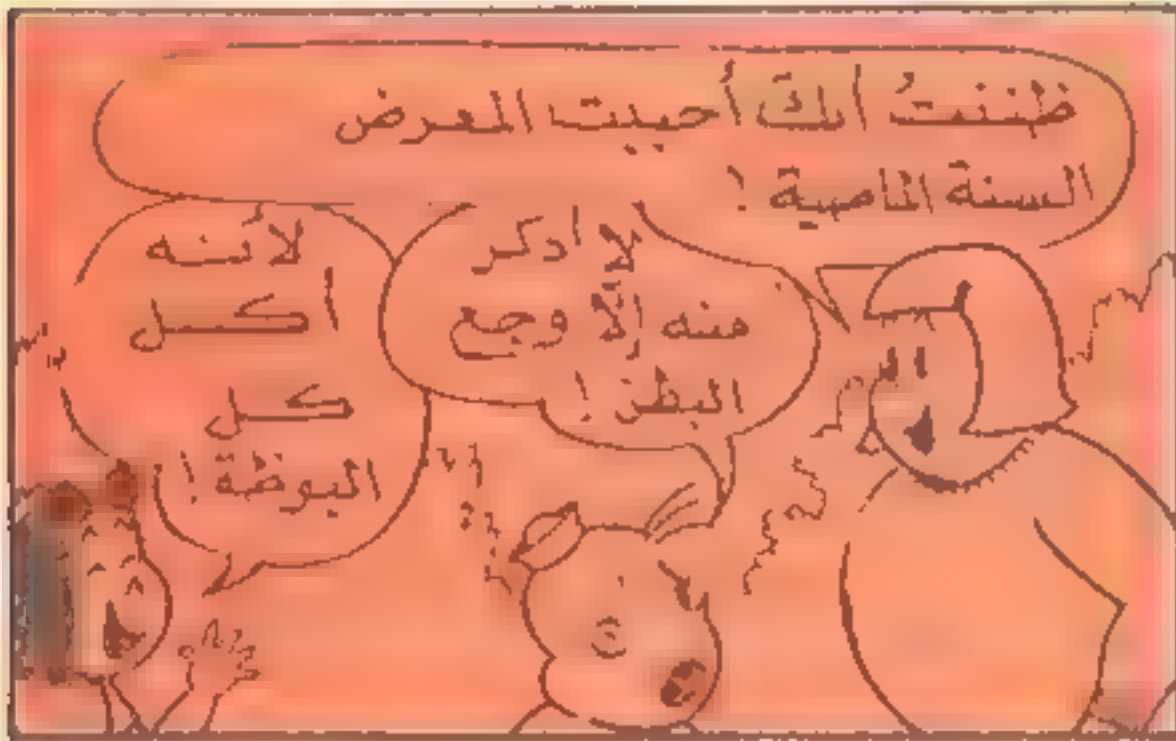 ظننتُ أنكَ أحببت العرض
السنة الماضية !
لا أذكر
منه إلّا وجع
البطن !
لأنّه
أكل
كل
البوظة !